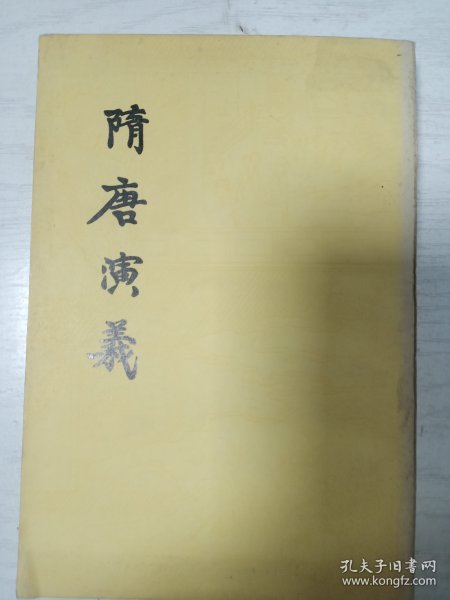 隋唐演義
孔夫子旧书网
www.kongfz.com